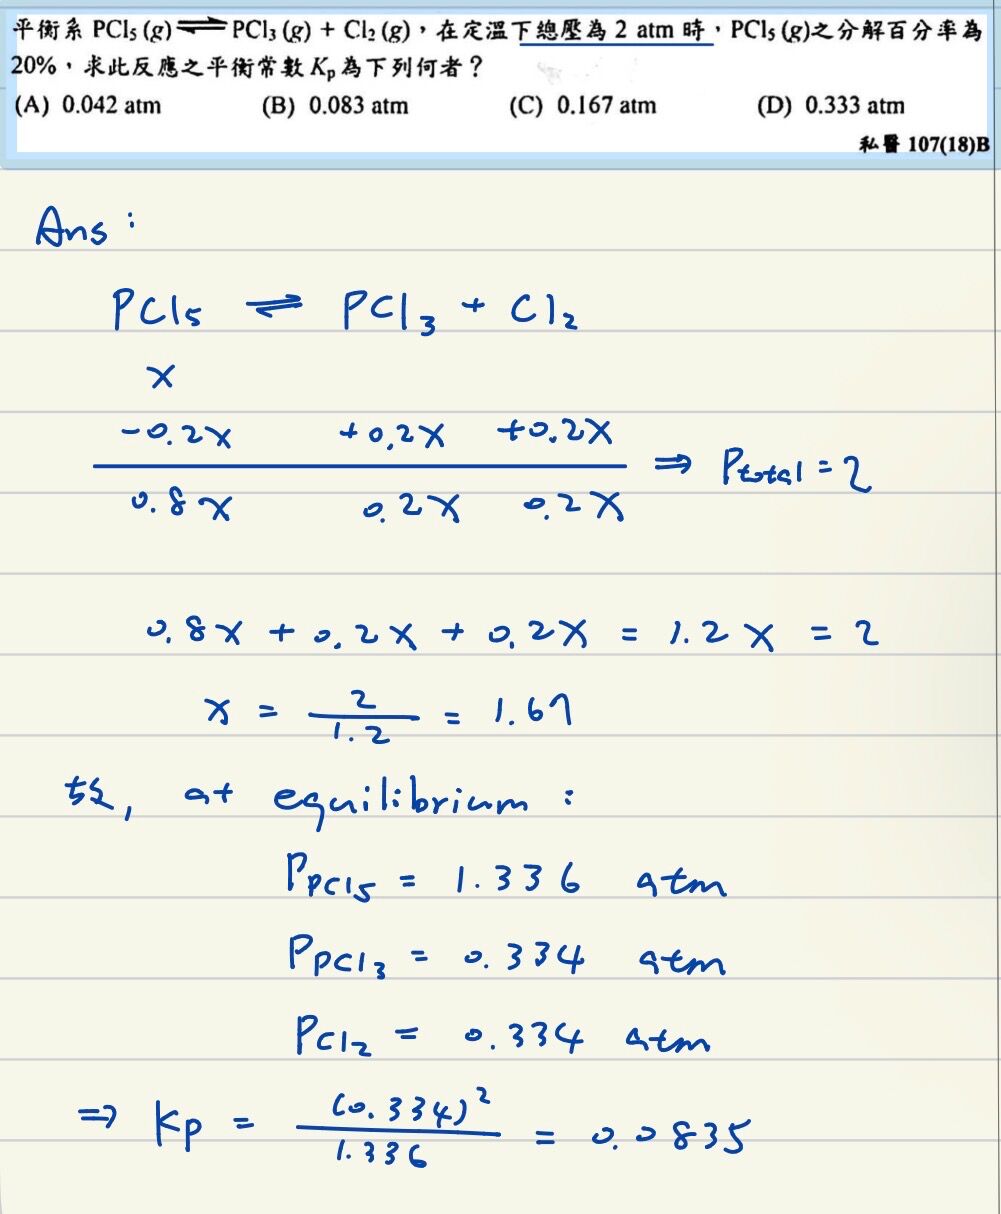 平衡系 PCl₅ (g) ⇌ PCl₃ (g) + Cl₂ (g)，在定溫下總壓為 2 atm 時，PCl₅ (g)之分解百分率為
20%，求此反應之平衡常數 Kₚ 為下列何者？
(A) 0.042 atm (B) 0.083 atm (C) 0.167 atm (D) 0.333 atm
私醫 107(18)B
Ans :
PCl₅ ⇌ PCl₃ + Cl₂
x
-0.2x +0.2x +0.2x
⇒ Ptotal = 2
0.8x 0.2x 0.2x
0.8x + 0.2x + 0.2x = 1.2x = 2
x = 2/1.2 = 1.67
故, at equilibrium :
P PCl₅ = 1.336 atm
P PCl₃ = 0.334 atm
P Cl₂ = 0.334 atm
⇒ Kp = (0.334)²/1.336 = 0.0835